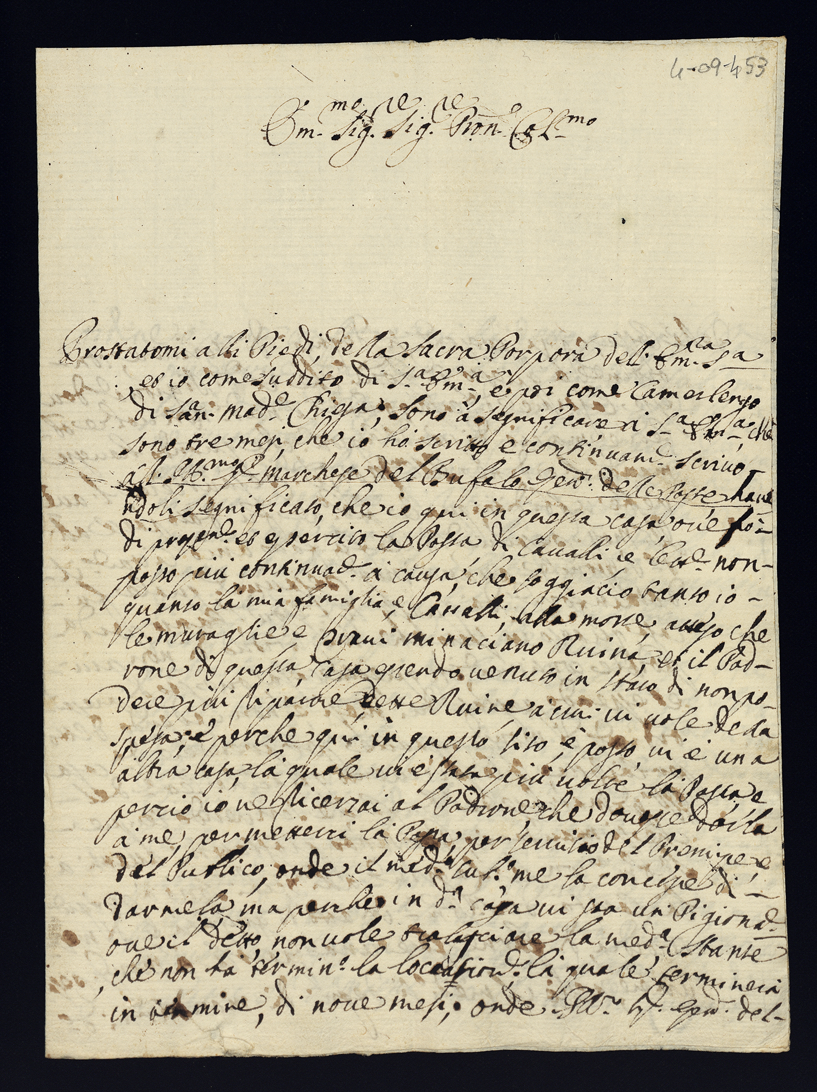 4-09-453
Em.mo Sig.re Sig.re Pron. Col.mo
Prostatomi alli Piedi, della Sacra Porpora dell' Em.za S.a
et io come suddito di S.a Em.a, e poi come Camerlengo
di San. Mad.e Chiesa, sono à significare a S.a Em.a che
sono tre mesi, che io hò scritto e continuam. scrivo
al Ill.mo Marchese del Bufalo Gen. delle Poste have
ndoli significato, che io qui in questa casa ove fò
di e esercito la Posta di Cavalli e non
posso più continuar a causa, che soggiacio tanto io
quanto la mia famiglia, e Cavalli, alla morte atteso che
le muraglie e travi minaciano Ruina, et il Pad-
rone di questa casa essendo venuto in stato di non po-
dere più riparare dette Ruine a cui vi vole della
spesa, e perche quì in questo sito, e posto vi è una
altra casa la quale vi è stata più volte la Posta e
perciò io ne ricerzai al Padrone che dovesse darla
à me, per metterci la Posta, per servitio del Prencipe e
del Publico, onde il med.o me la concesse di
darmela, ma perche in d.a casa vi sta un Pigionad.
ove il detto non vole tralasciare la med.a Stante
che non hà termin.o la locationd. la quale terminerà
in termine, di nove mesi, onde Ill. Gen. del-